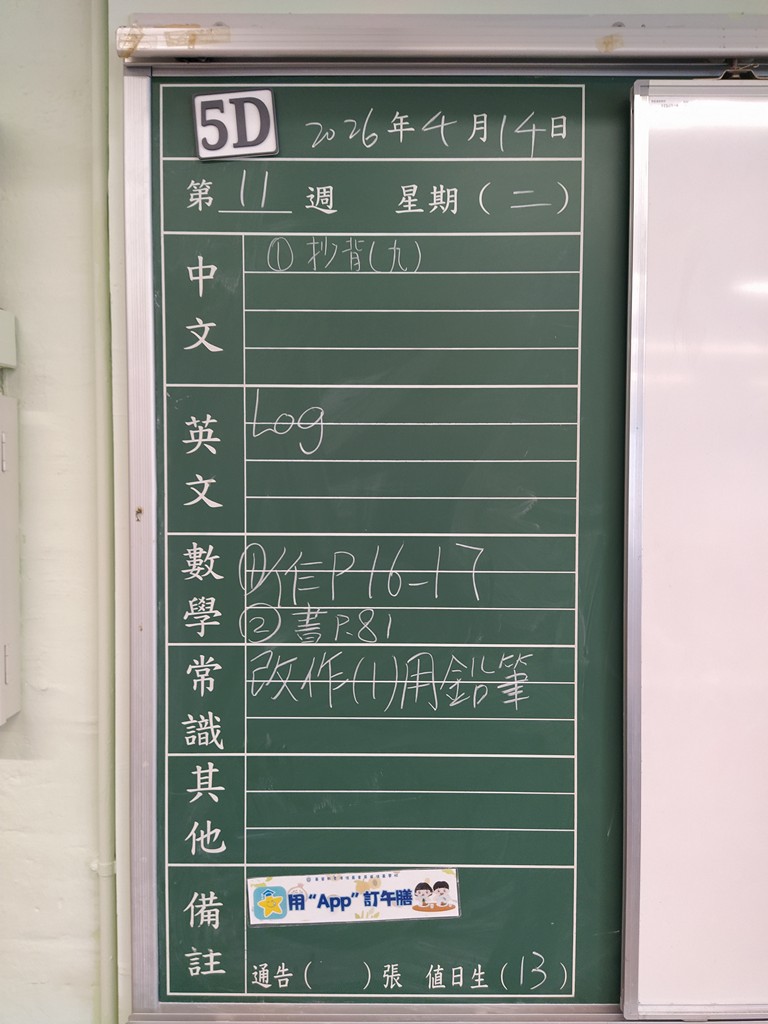 5D 2026年4月14日
第 11 週 星期(二)
中文
① 抄背(九)
英文
Log
數學
① 作 P16-17
② 書 P.81
常識
改作(1)用鉛筆
其他
備註
用“App”訂午膳
通告( )張 值日生(13)